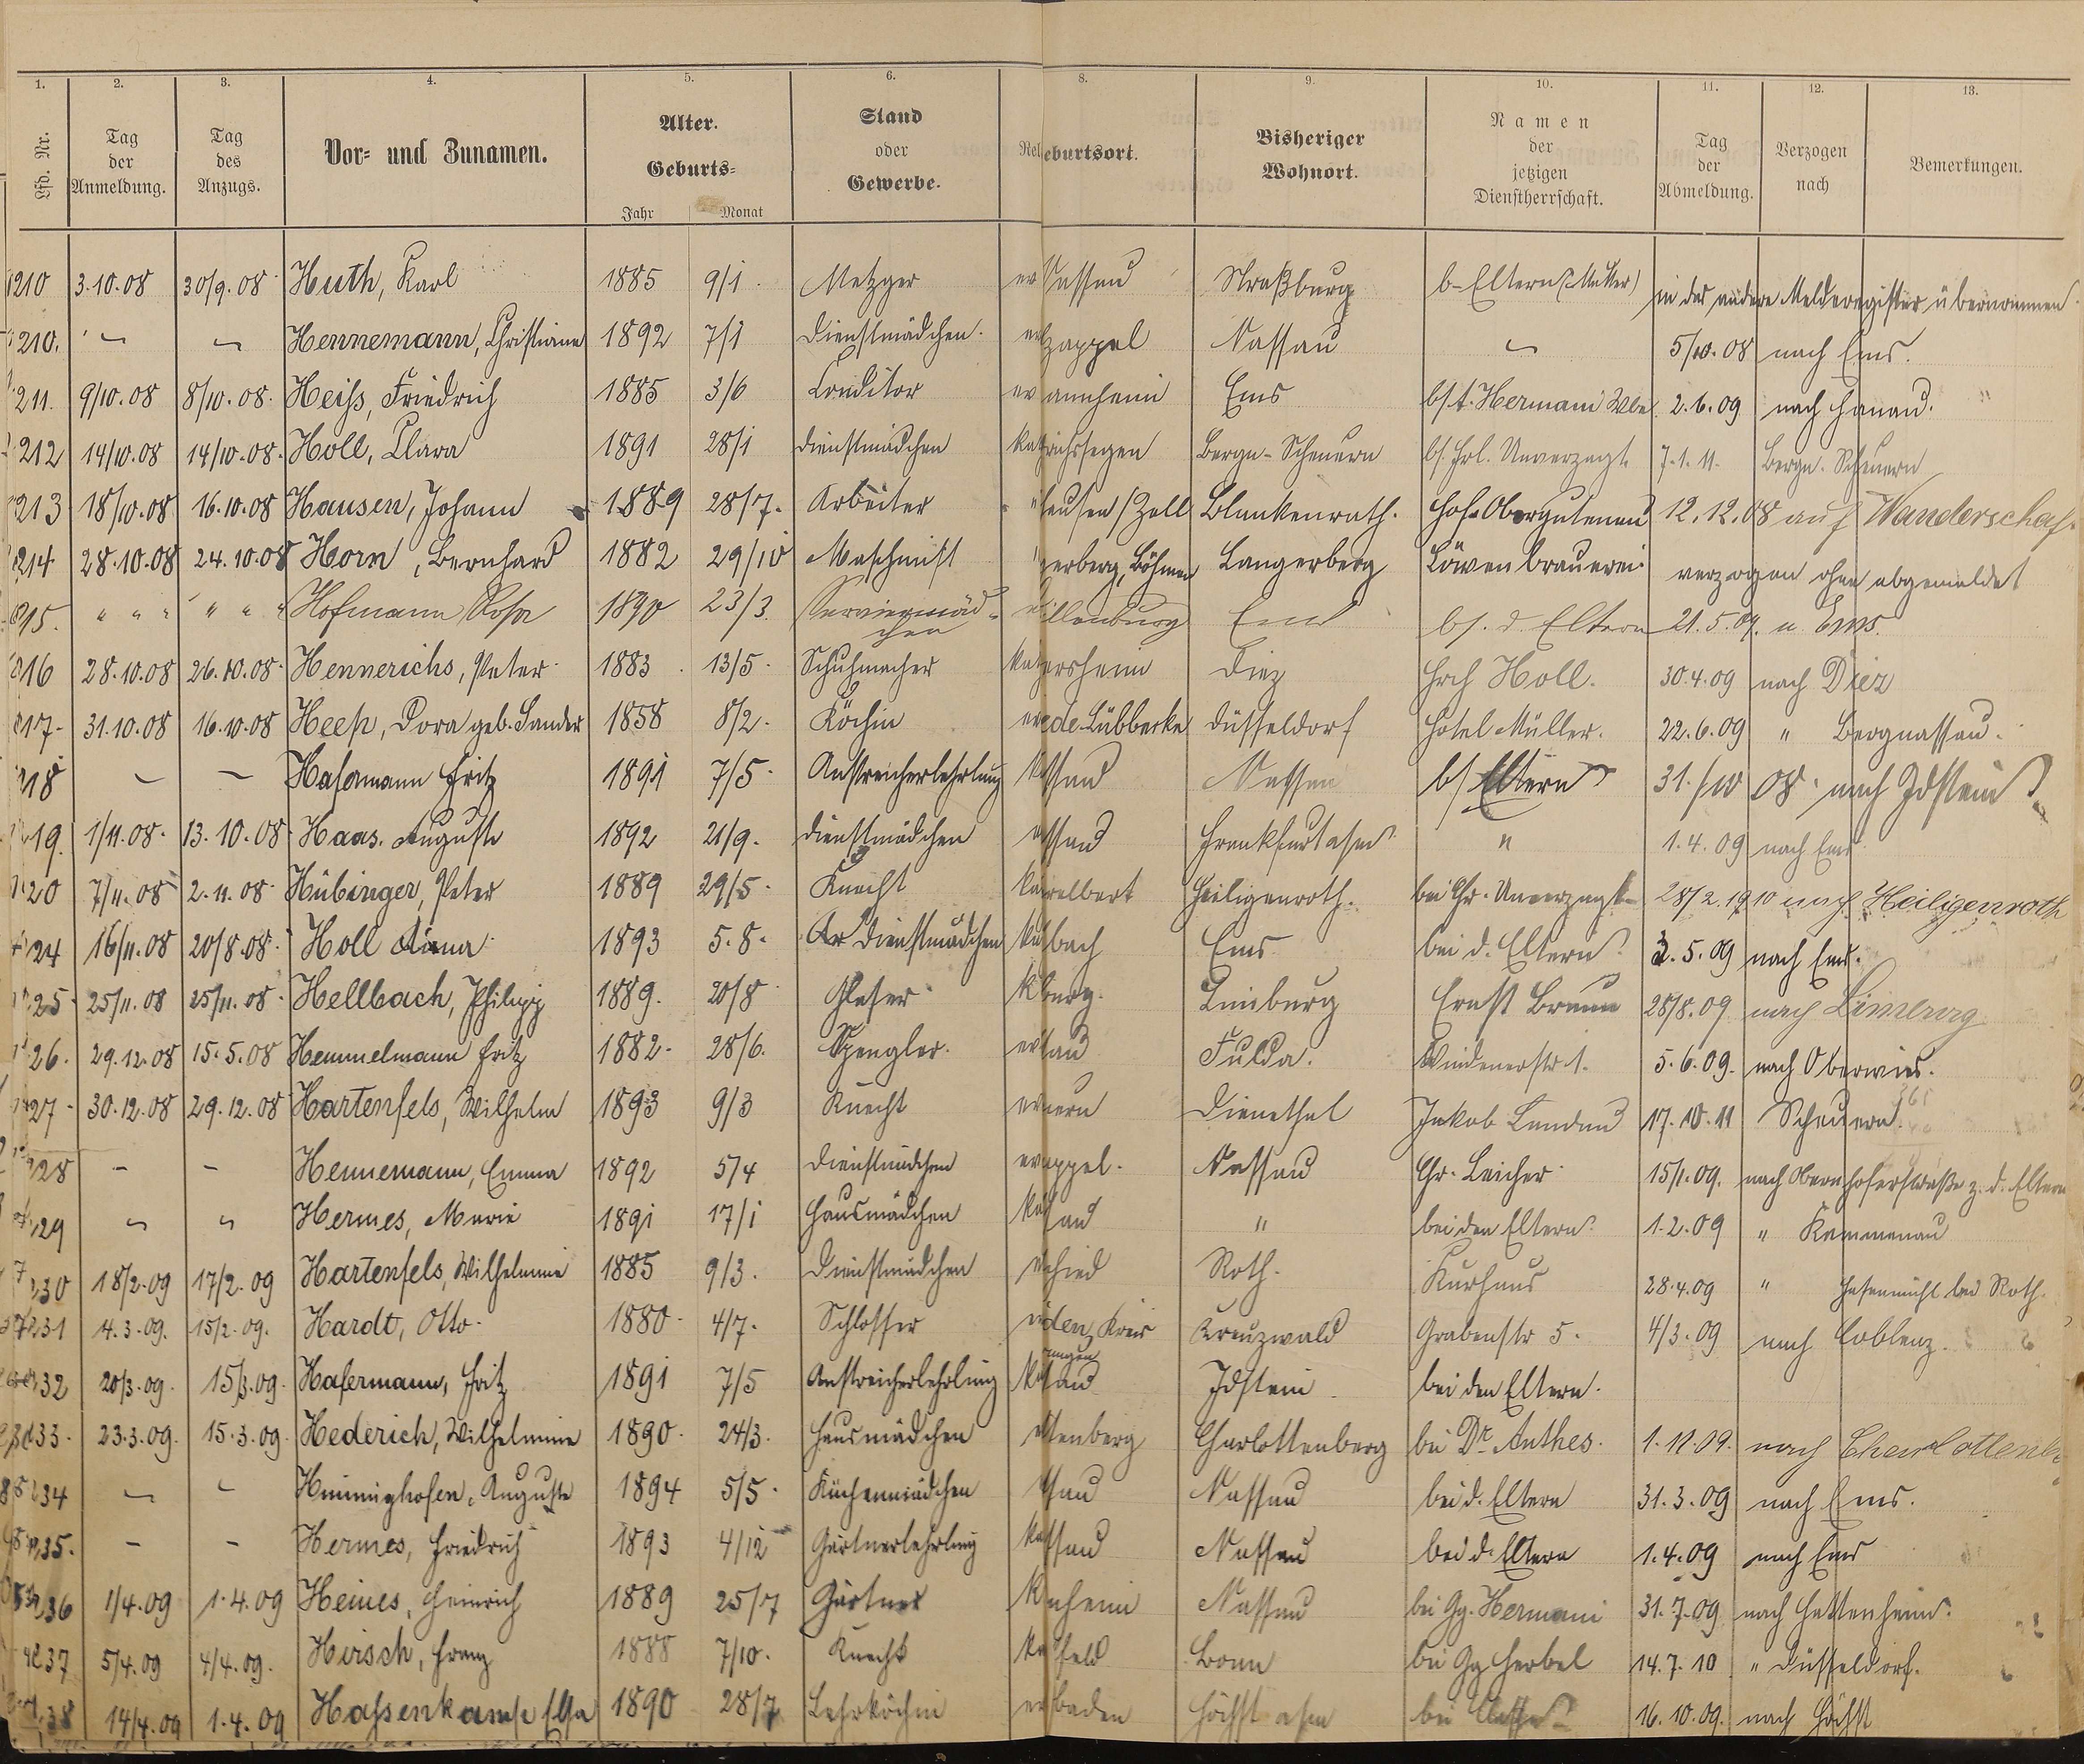 1. 2. 3. 4. 5. 6. 8. 9. 10. 11. 12. 13.
Lfd. Nr. Tag der Anmeldung. Tag des Anzugs. Vor- und Zunamen. Alter. Geburts- Jahr Monat Stand oder Gewerbe. Rel eburtsort. Bisheriger Wohnort. Namen der jetzigen Dienstherrschaft. Tag der Abmeldung. Verzogen nach Bemerkungen.
210 3.10.08 30/9.08 Huth, Karl 1885 9/1. Metzger ev Nassau Straßburg b-Eltern (Mutter) in das andere Melderegister übernommen.
210. Hennemann, Christiane 1892 7/1 Dienstmädchen. ev zappel Nassau 5/10.08 nach Ems.
211. 9/10.08 8/10.08. Heiss, Friedrich 1885 3/6 Conditor ev annheim Ems b/ A. Hermani Wwe 2.6.09 nach Hanau.
212 14/10.08 14/10.08. Holl, Clara 1891 28/1 Dienstmädchen kat richssegen Bergn-Scheuern b/. Frl. Unverzagt. 7.1.11. Bergn. Scheuern
213 18/10.08 16.10.08 Hausen, Johann 1889 28/7. Arbeiter " hausen/Zell Blankenrath. Hof-Obergutenau 12.12.08 auf Wanderschaf.
214 28.10.08 24.10.08 Horn, Bernhard 1882 29/10 Maschinist " gerberg, Böhmen Langerberg Löwenbrauerei verzogen ohne abgemeldet
215. " " " " " " Hofmann Rosa 1890 23/3. Serviermäd-chen illenburg Ems b/. d. Eltern 21.5.09. n. Ems.
216 28.10.08 26.10.08. Hennerichs, Peter 1883. 13/5. Schuhmacher kat ersheim Diez Hrch Holl. 30.4.09 nach Diez
217. 31.10.08 16.10.08 Heep, Dora geb. Sander 1858 8/2. Köchin ev de-Lübbecke Düsseldorf Hotel Müller. 22.6.09 " Bergnassau.
218 Hasermann Fritz 1891 7/5. Anstreicherlehrling ssau Nassau b/ Eltern 31./10 08. nach Idstein
219. 1/11.08. 13.10.08. Haas. Auguste 1892 21/9. Dienstmädchen ssau Frankfurt a/m " 1.4.09 nach Ems
220 7/11.08 2.11.08. Hübinger, Peter 1889 29/5. Knecht relbert Heiligenroth. bei Chr. Unverzagt 28/2.1910 nach Heiligenroth
24 16/11.08 20/8.08. Holl Anna 1893 5.8. Dienstmädchen bach Ems bei d. Eltern 3.5.09 nach Ems.
25. 25/11.08 25/11.08. Hellbach, Philipp 1889. 20/8 Glaser k burg. Limburg Ernst Braun 28/8.09 nach Limburg
26. 29.12.08 15.5.08 Hemmelmann Fritz 1882. 28/6. Spengler. ev sau Fulda. Windenerstr 1. 5.6.09. nach Oberwies.
27. 30.12.08 29.12.08 Hartenfels, Wilhelm 1893 9/3 Knecht ev uern Dienethal Jakob Landau 17.10.11 Scheuern.
28 Hennemann, Emma 1892 5/4 Dienstmädchen ev appel. Nassau Chr. Leicher 15/1.09. nach Obernhoferstraße z. d. Eltern
29 Hermes, Marie 1891 17/1 Hausmädchen sau " bei den Eltern. 1.2.09 " Kemmenau
230 18/2.09 17/2.09 Hartenfels, Wilhelmine 1885 9/3. Dienstmädchen chied Roth. Kurhaus 28.4.09 " Hasenmühl bei Roth.
231 4.3.09. 15/2.09. Hardt, Otto. 1880. 4/7. Schlosser den, Kreis Kreuzwald Grabenstr 5. 4/3.09 nach Coblenz.
232 20/3.09. 15/3.09. Hasermann, Fritz 1891 7/5 Anstreicherlehrling sau Idstein bei den Eltern.
233. 23.3.09. 15.3.09. Hederich, Wilhelmine 1890. 24/3. Hausmädchen ttenberg Charlottenberg bei Dr. Anthes. 1.11.09. nach Charlottenb
234 Hinninghofen, Auguste 1894 5/5. Küchenmädchen ssau Nassau bei d. Eltern 31.3.09 nach Ems.
235. Hermes, Friedrich 1893 4/12 Gärtnerlehrling ssau Nassau bei d. Eltern 1.4.09 nach Ems
236 1/4.09 1.4.09 Heines, Heinrich 1889 25/7 Gärtner nheim Nassau bei Gg. Hermani 31.7.09 nach Hattenheim.
237 5/4.09 4/4.09. Hirsch, Franz 1888 7/10. Knecht feld Bonn bei Gg Herbel 14.7.10 " Düsseldorf.
238 14/4.09 1.4.09 Hassenkamp Elsa 1890 28/7 Lehrköchin baden Höchst a/m bei 16.10.09. nach Höchst